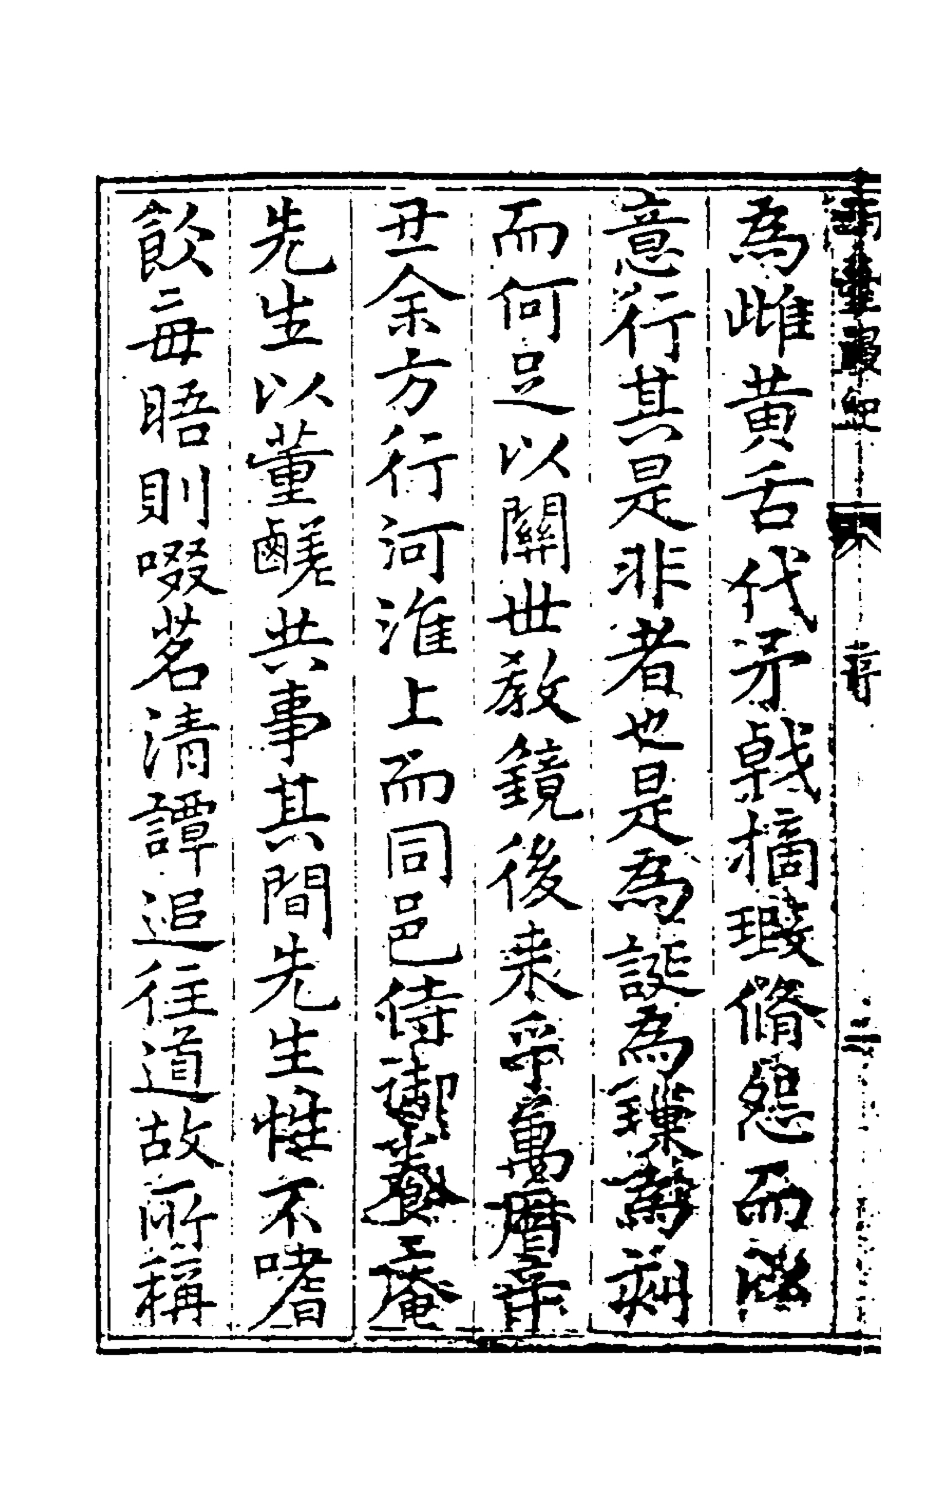 西臺漫紀 序 二
為雌黃舌代矛戟摘瑕脩怨而
意行其是非者也是為誕為
而何足以關世教鏡後来乎萬曆辛
丑余方行河淮上而同邑侍御養庵
先生以董鹺共事其間先生惟不嗜
飲每晤則啜茗清譚追往道故所稱